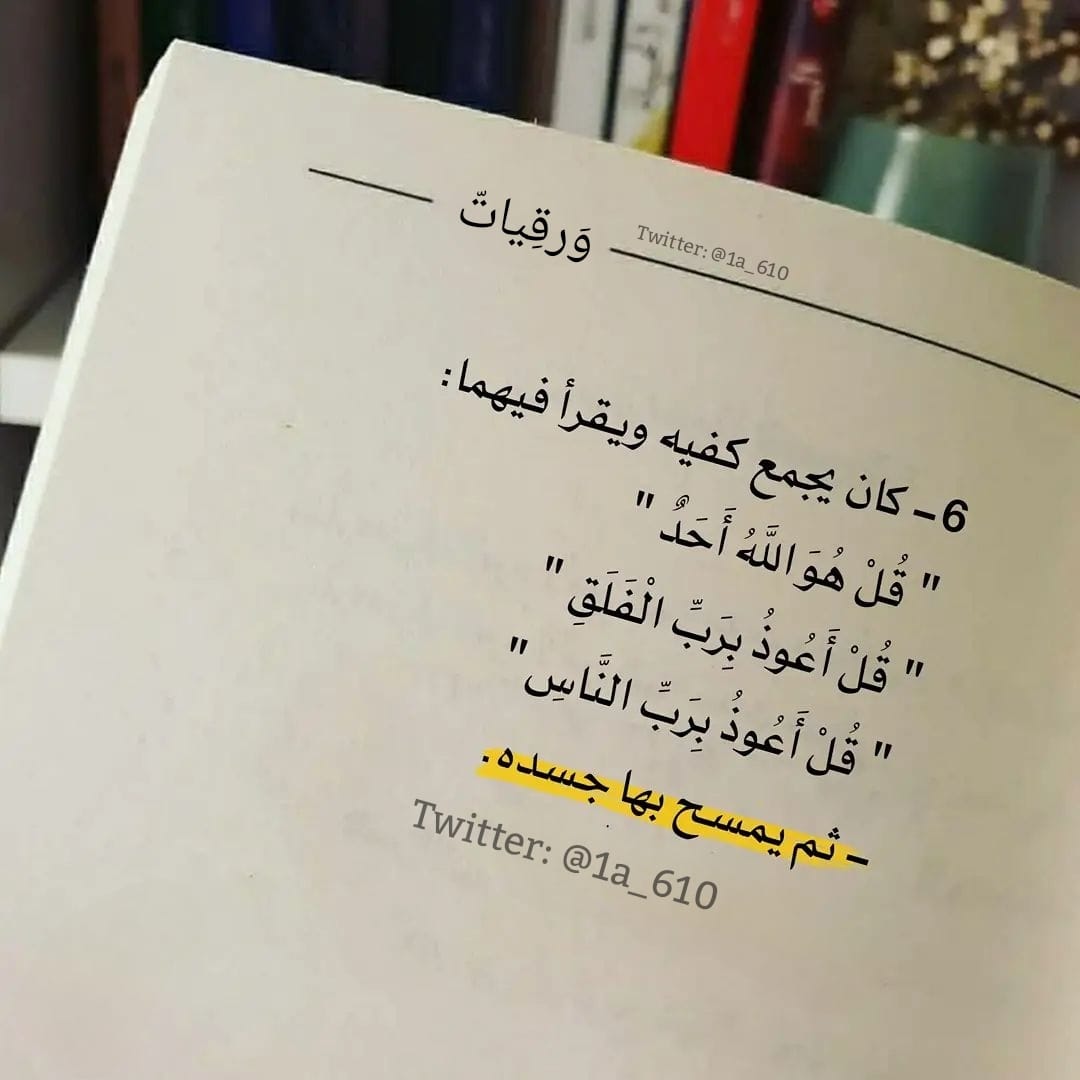 وَرقِياتّ
Twitter: @1a_610
6 - كان يجمع كفيه ويقرأ فيهما:
" قُلْ هُوَ اللَّهُ أَحَدٌ "
" قُلْ أَعُوذُ بِرَبِّ الْفَلَقِ "
" قُلْ أَعُوذُ بِرَبِّ النَّاسِ "
- ثم يمسح بها جسده.
Twitter: @1a_610